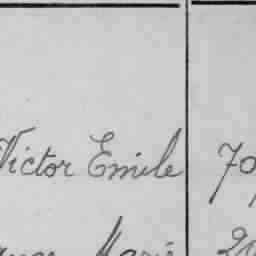 Victor Emile 70
Marie 20